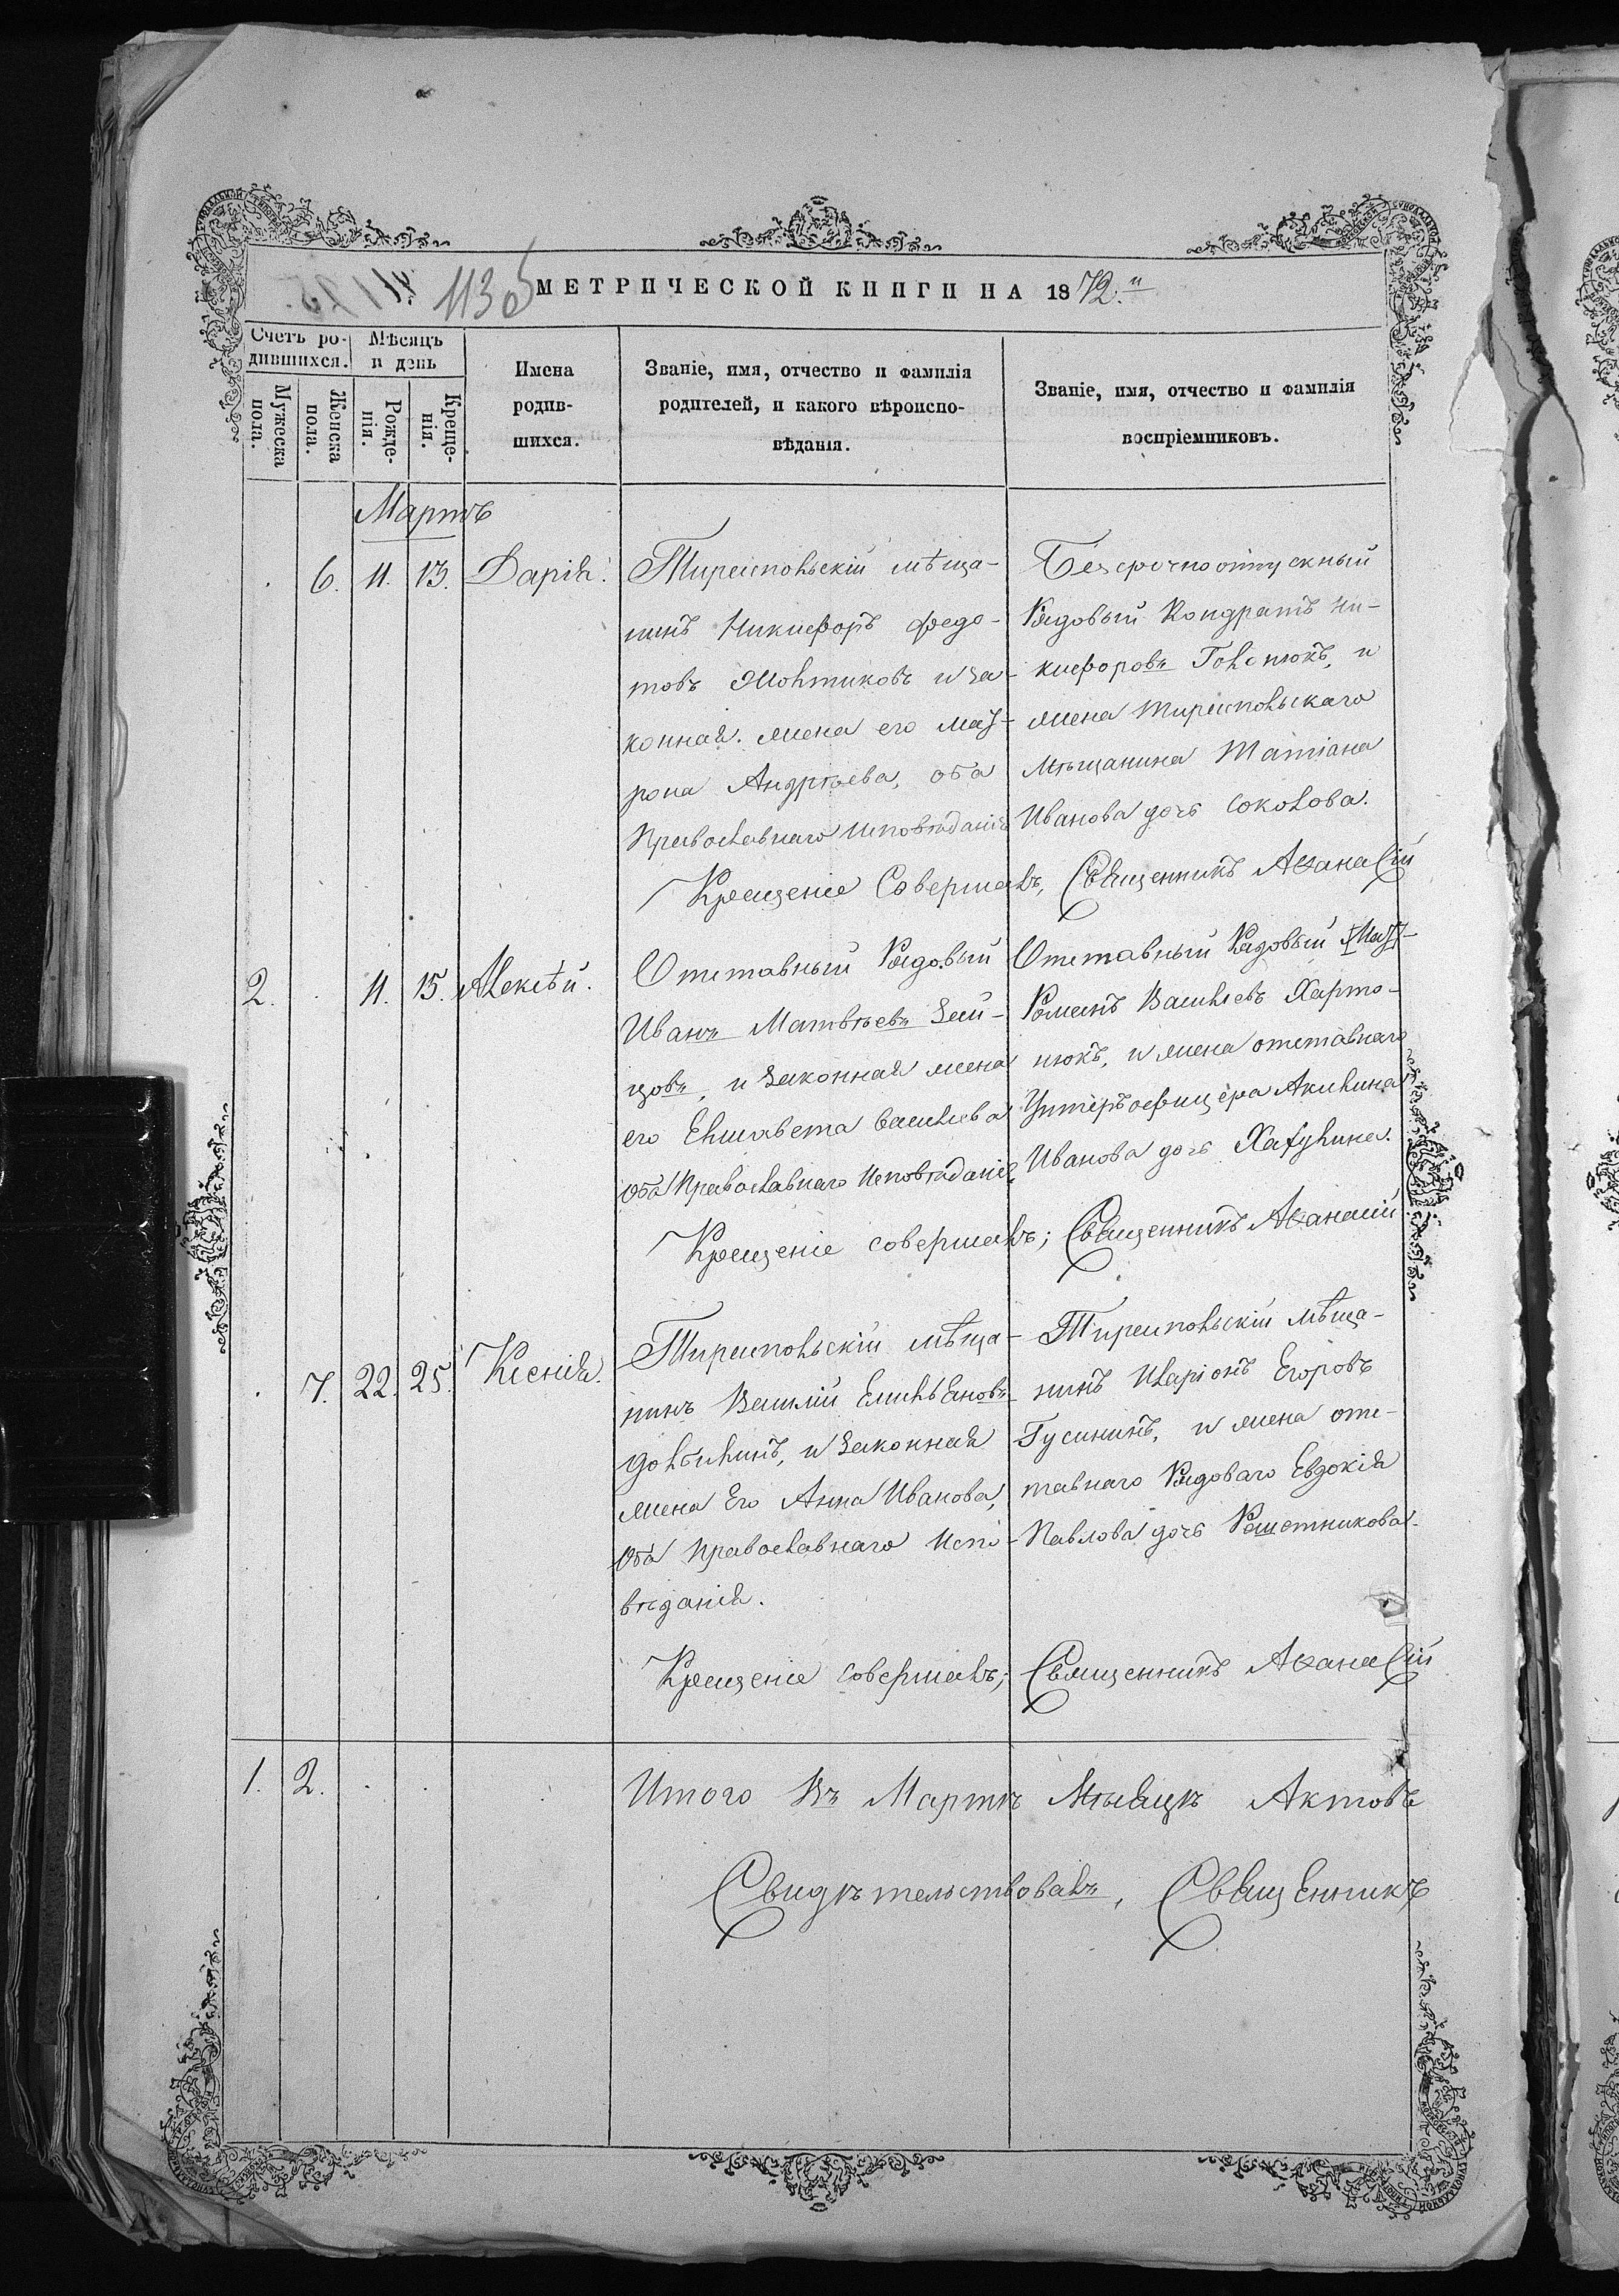 113 об
МЕТРИЧЕСКОЙ КНИГИ НА 1872.й
Счетъ ро-
дившихся.
Мѣсяцъ
и день
Мужеска
пола.
Женска
пола.
Рожде-
нія.
Креще-
нія.
Имена
родив-
шихся.
Званіе, имя, отчество и фамилія
родителей, и какого вѣроиспо-
вѣданія.
Званіе, имя, отчество и фамилія
воспріемниковъ.
Мартъ
6. 11. 13. Дарія.
Тираспольскій мѣща-
нинъ Никифоръ Федо-
товъ Жолтиковъ и за-
конная жена его Мат-
рона Андрѣева, оба
Православнаго Исповѣданія
Безсрочноотпускный
Рядовый Кондратъ Ни-
кифоровъ Голонюкъ, и
жена Тираспольскаго
Мѣщанина Татіана
Иванова дочь Соколова.
Крещеніе Совершалъ, Священникъ Аѳанасій
2. 11. 15. Алексѣй.
Отставный Рядовый
Иванъ Матвѣевъ Зай-
цовъ, и Законная жена
его Елисавета Васильева
оба Православнаго Исповѣданія,
Отставный Рядовый
Романъ Васильевъ Харто-
нюкъ, и жена отставнаго
Унтеръ офицера Акилина
Иванова дочь Хатулина.
Крещеніе совершалъ; Священникъ Аѳанасій
7. 22. 25. Ксенія.
Тираспольскій мѣща-
нинъ Василій Емильяновъ
Долбилинъ, и Законная
жена Его Анна Иванова,
Оба Православнаго Испо-
вѣданія.
Тираспольскій мѣща-
нинъ Иларіонъ Егоровъ
Гусининъ, и жена отс-
тавнаго Рядоваго Евдокія
Павлова дочь Решетникова.
Крещеніе совершалъ; Священникъ Аѳанасій
1. 2. Итого Въ Мартѣ Мѣсяцѣ Актовъ
Свидѣтельствовалъ, Священникъ